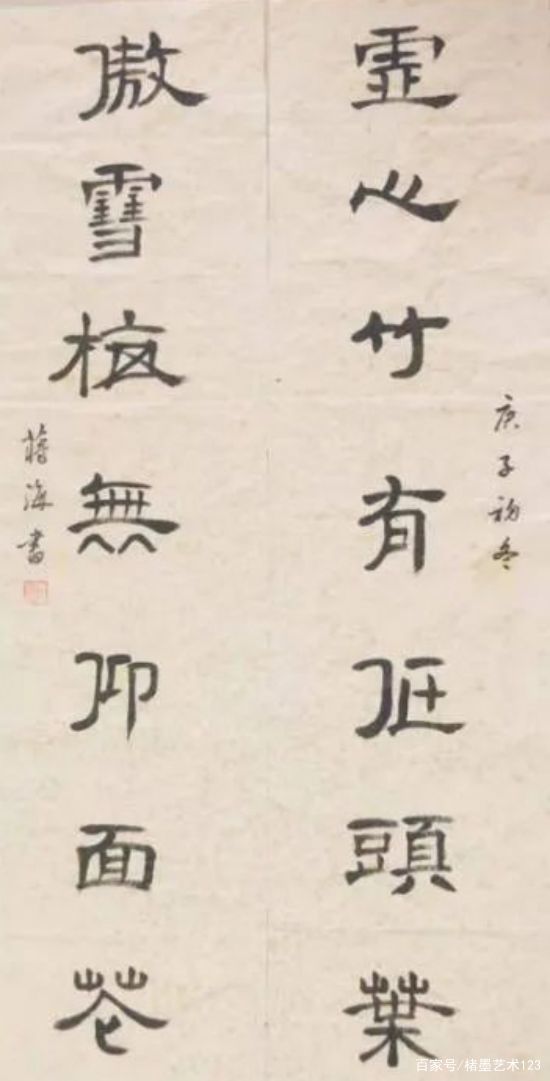 庚子初冬
虛心竹有低頭葉
傲雪梅無仰面花
蔣海書
百家号/楮墨艺术123